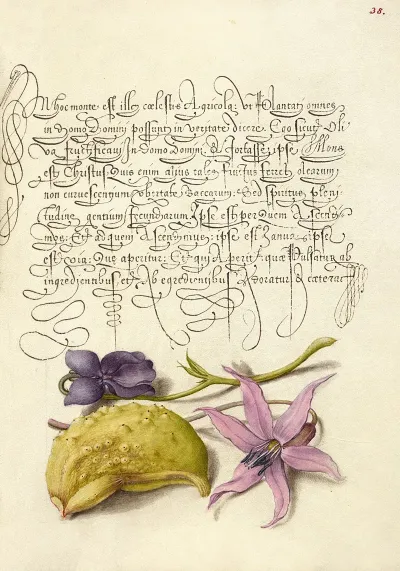 38.
In hoc monte est ille cœlestis Agricola: Vt Plantati omnes
in Domo Domini possunt in veritate dicere. Ego sicut Oli
va fructificaui In Domo Domini. et fortasse ipse Mons
est Christus. Quis enim alius tales fructus ferret olearum
non curuescentium vbertate Baccarum. Sed spiritus pleni
tudine gentium fecundarum. Ipse est per quem Ascendi-
mus: Et ad quem Ascendimus: ipse est Ianua: ipse
est via: Que aperitur: Et qui Aperit: a quæ Pulsatur ab
ingredientibus et Ab egredientibus Adoratur & cætera: